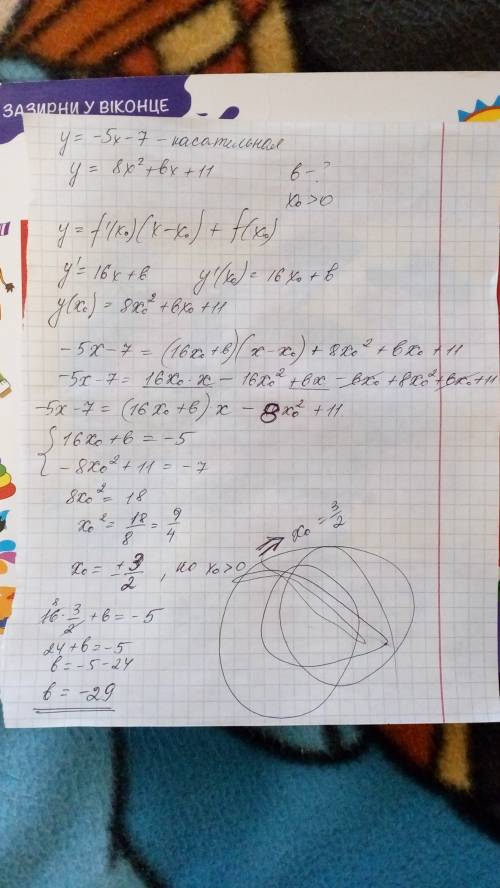 ЗАЗИРНИ У ВІКОНЦЕ
y = -5x - 7 - касательная
y = 8x² + вx + 11
в - ?
x₀ > 0
y = f'(x₀)(x - x₀) + f(x₀)
y' = 16x + в y'(x₀) = 16x₀ + в
y(x₀) = 8x₀² + вx₀ + 11
-5x - 7 = (16x₀ + в)(x - x₀) + 8x₀² + вx₀ + 11
-5x - 7 = 16x₀·x - 16x₀² + вx - вx₀ + 8x₀² + вx₀ + 11
-5x - 7 = (16x₀ + в)x - 8x₀² + 11
{ 16x₀ + в = -5
-8x₀² + 11 = -7
8x₀² = 18
x₀² = 18/8 = 9/4
x₀ = ±3/2, но x₀ > 0 ⇒ x₀ = 3/2
8
16·3/2 + в = -5
24 + в = -5
в = -5 - 24
в = -29